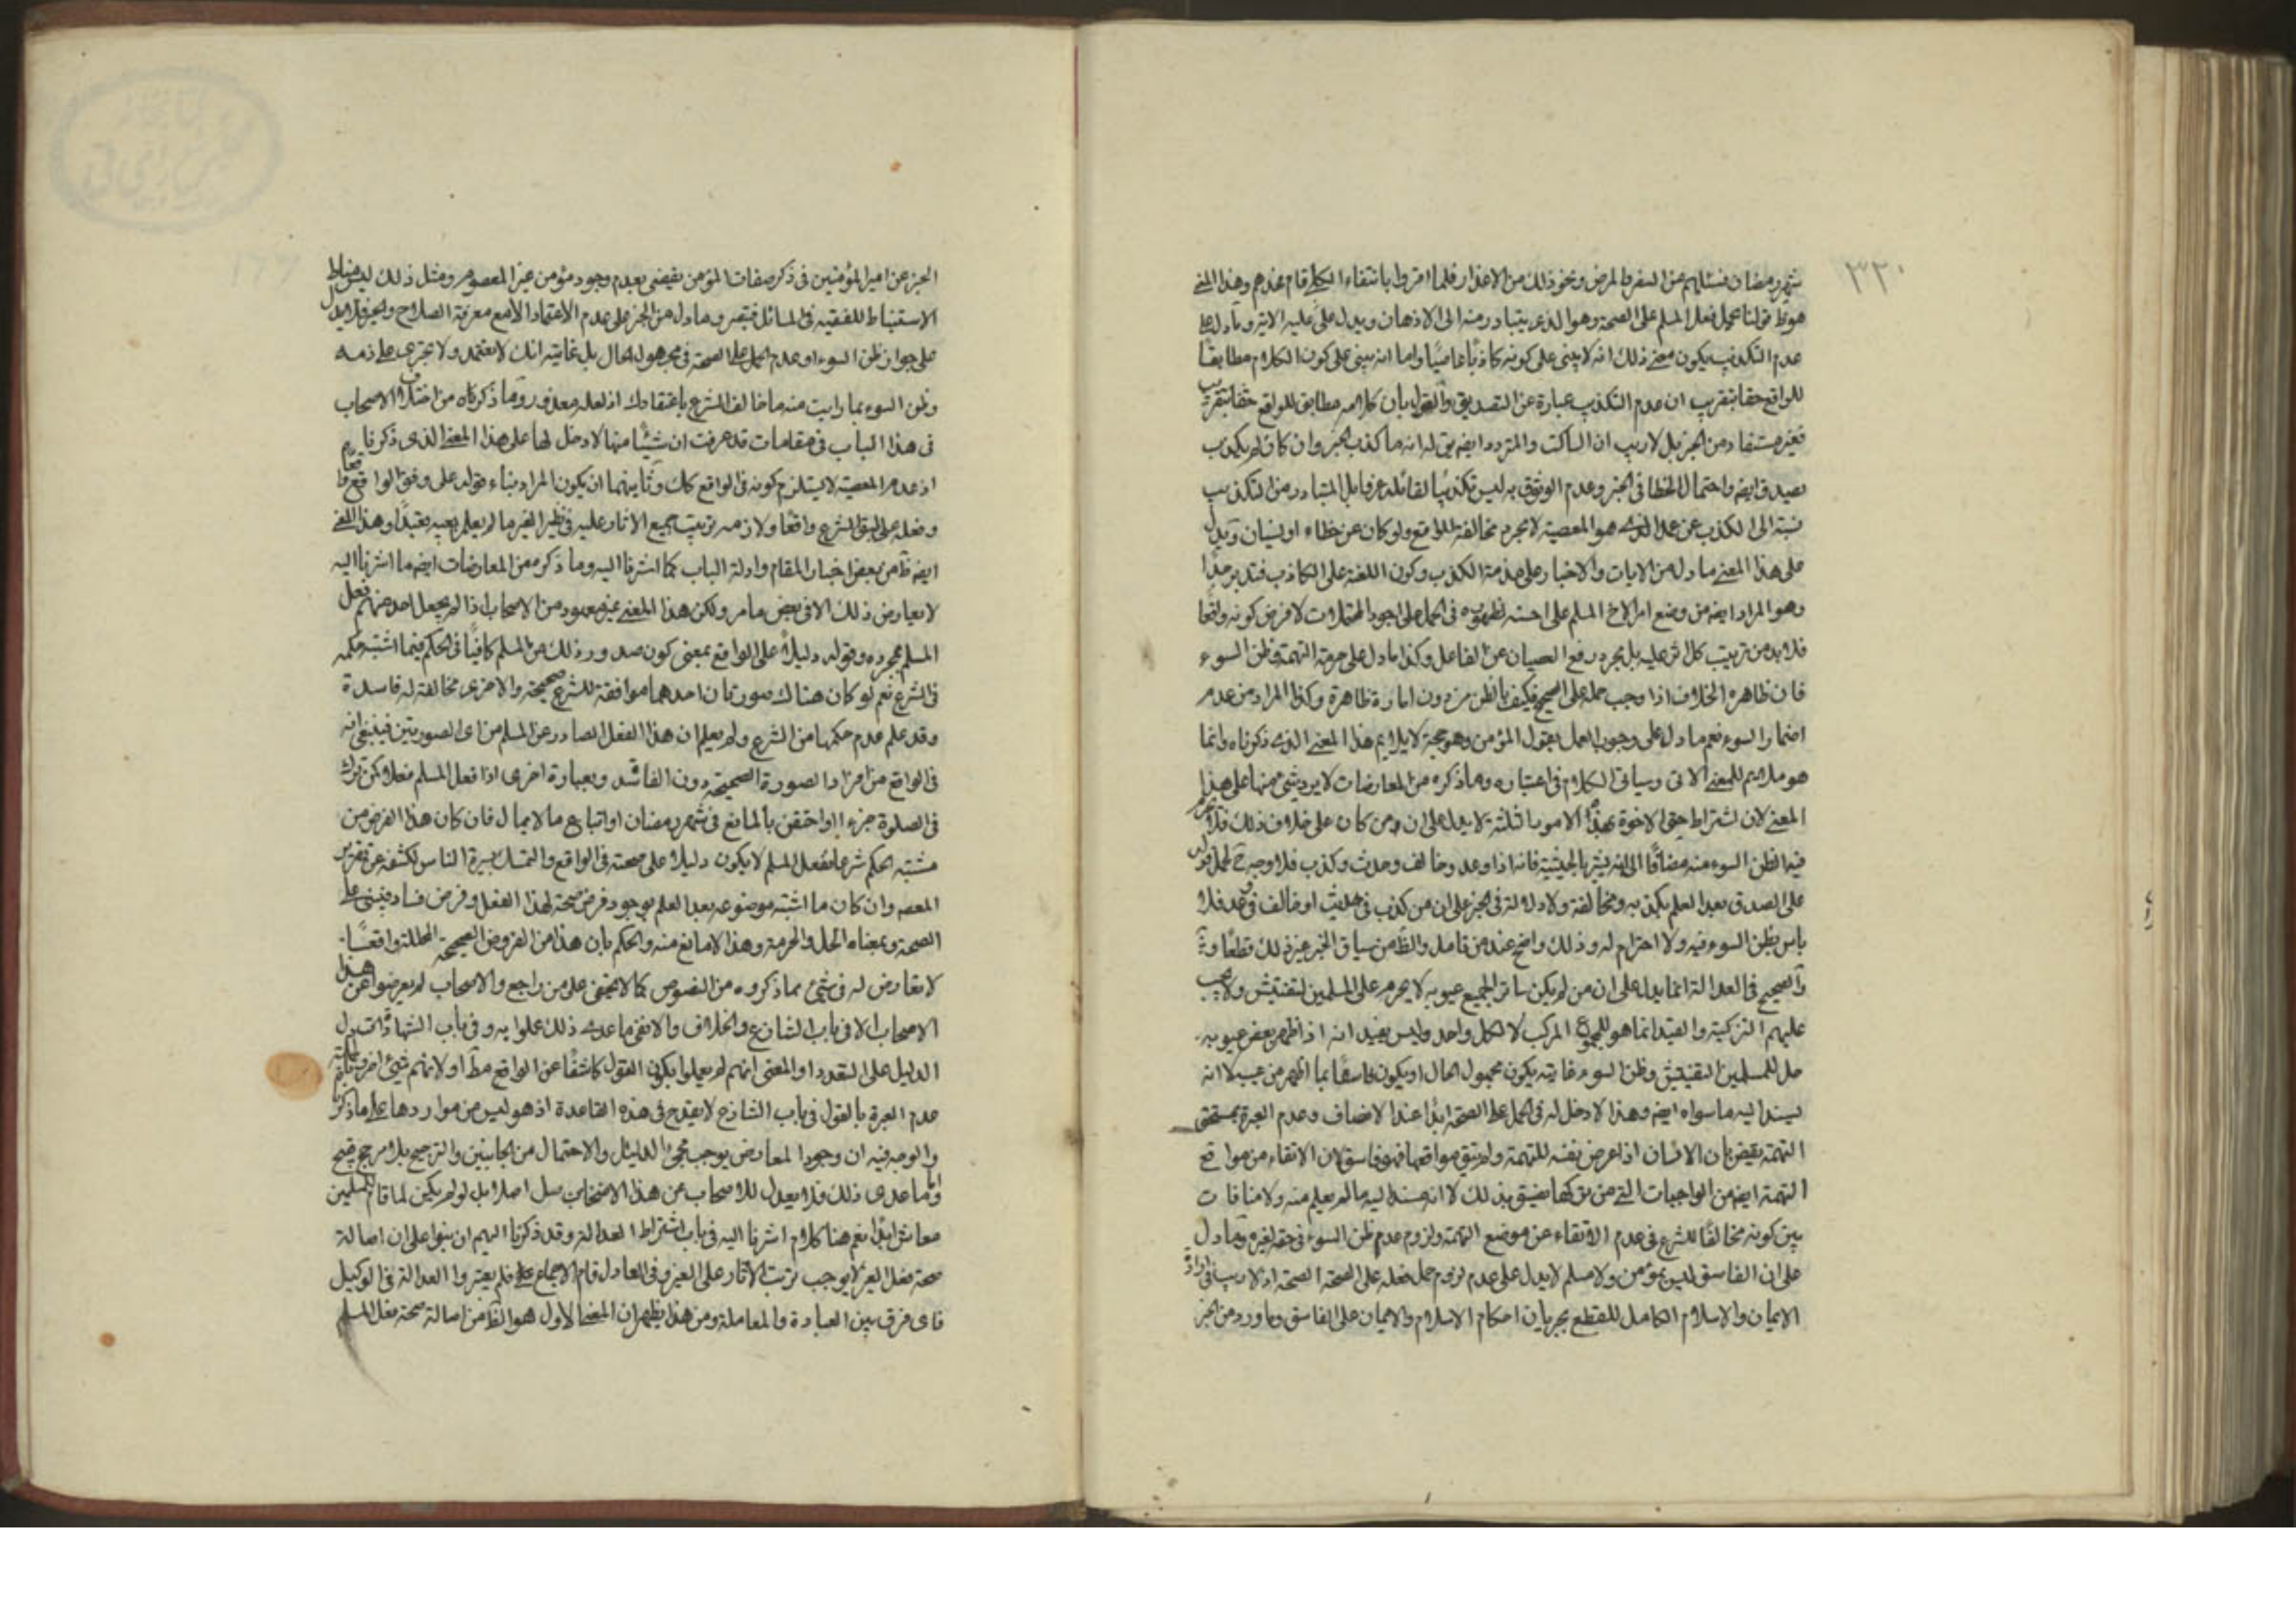 ٣٢٠
شهر رمضان فسئلهم عن السفر والمرض ونحو ذلك من الاعذار فلما اقروا بانتفاء الكل قام عندهم وهذا المعنى
هو قولنا يحمل فعل المسلم على الصحة وهو الذى يتبادر منه الى الاذهان ويدل على عليه الاية وما دل على
عدم التكذيب يكون معنى ذلك انه لا يبنى على كونه كاذبًا عاصيًا واما انه يبنى على كون الكلام مطابقًا
للواقع حقا بتقريب ان عدم التكذيب عبارة عن التصديق والقول بان كلامه مطابق للواقع حقا بتقريب
فغير مستفاد من الخبر بل لا ريب ان الساكت والمتردد ايضا يق له انه ما كذب الخبر وان كان لم يكذب
يصدق ايضا واحتمال الخطا فى الخبر وعدم الوثوق به ليس تكذيبًا لقائله عرفا بل المتبادر من التكذيب
نسبته الى الكذب عن عمد الذى هو المعصية لا مجرد مخالفة الواقع ولو كان عن خطاء او نسيان ويدل
على هذا المعنى ما دل من الايات والاخبار على مذمة الكذب وكون اللعنة على الكاذب فتدبر جدًا
وهو المراد ايضا من وضع امر الاخ المسلم على احسنه لظهوره فى الحمل على اجود المحتملات لا فرض كونه واقعًا
فلا بد من ترتيب كل اثر عليه بل مجرد رفع العصيان عن الفاعل وكذا ما دل على حرمة التهمة وظن السوء
فان ظاهره الخلاف اذا وجب حمله على الصحيح فكيف بالظن من دون امارة ظاهرة وكذا المراد من عدم
اضمار السوء نعم ما دل على وجوب العمل بقول المؤمن وهو حجة لا يلايم هذا المعنى الذى ذكرناه وانما
هو ملايم للمعنى الاتى وسياتى الكلام فى اعتباره وما ذكره من المعارضات لا يرد شئ منها على هذا
المعنى لان اشتراط حق الاخوة بهذه الامور الثلثة لا يدل على ان من كان على خلاف ذلك فلا
فيه الظن السوء منه مضافًا الى انه يشير بالحيثية فانه اذا وعد وخالف وحدث وكذب فلا وجه ح لحمل قوله
على الصدق بعد العلم بكذبه ومخالفته ولا دلالة فى الخبر على ان من كذب فى حديث او خالف فى وعد فلا
باس بظن السوء فيه ولا احترام له وذلك واضح عند من تامل والظ من سياق الخبر غير ذلك قطعًا
والصحيح فى العدالة انما يدل على ان من لم يكن ساتر الجميع عيوبه لا يحرم على المسلمين التفتيش ولا يجب
عليهم التزكية والقيد انما هو للمجموع المركب لا لكل واحد وليس يفيد انه اذا ظهر بعض عيوبه
حل للمسلمين التفتيش وظن السوء غايته يكون مجهول الحال او يكون فاسقًا بما اظهر من عيب لا انه
يسند اليه ما سواه ايضا وهذا لا دخل له فى الحمل على الصحة ابدًا عند الانصاف وعدم العبرة بمستحق
التهمة يقضى بان الانسان اذا عرض نفسه للتهمة ولم يتق مواقعها فهو فاسق لان الاتقاء من مواقع
التهمة ايضا من الواجبات التى من تركها يفسق بذلك لا انه مسند اليه ما لم يعلم منه ولا منافات
بين كونه مخالفًا للشرع فى عدم الاتقاء عن موضع التهمة ولزوم عدم ظن السوء فى حقه لغيره وما دل
على ان الفاسق ليس بمؤمن ولا مسلم لا يدل على عدم لزوم حمل فعله على الصحة الصحة اذ لا ريب فى ارادة
الايمان والاسلام الكامل للقطع بجريان احكام الاسلام والايمان على الفاسق وما ورد من الخبر
الخبر عن امير المؤمنين فى ذكر صفات المؤمن يقضى بعدم وجود مؤمن غير المعصوم ومثل ذلك ليس مناط
الاستنباط للفقيه فى المسائل فتبصر وما دل من الخبر على عدم الاعتماد الا مع معرفة الصلاح والخبر فلا يدل
على جواز ظن السوء او عدم الحمل على الصحة فى مجهول الحال بل غايته انك لا تعتمد ولا تجترى على ذمه
وظن السوء بما رايت منه ما خالف الشرع باعتقادك اذ لعله معذور وما ذكرناه من اختلاف الاصحاب
فى هذا الباب فى مقامات قد عرفت ان شيئًا منها لا دخل لها على هذا المعنى الذى ذكرنا
اذ عدم المعصية لا يستلزم كونه فى الواقع كك وثانيهما ان يكون المراد بناء قوله على وفق الواقع
وفعله على طبق الشرع واقعًا ولازمه ترتيب جميع الاثار عليه فى نظير الغير ما لم يعلم بعيبه تعبدًا وهذا المعنى
ايضا ظ من بعض اخبار المقام وادلة الباب كما اشرنا اليه وما ذكره من المعارضات ايضا ما اشرنا اليه
لا يعارض ذلك الا فى بعض ما مر ولكن هذا المعنى غير معهود من الاصحاب اذ لم يجعل احد منهم فعل
المسلم بمجرده وقوله دليلا على الواقع بمعنى كون صدور ذلك من المسلم كافيًا فى الحكم فيما اشتبه حكمه
فى الشرع نعم لو كان هناك صورتان احدهما موافقة للشرع صحيحة والاخرى مخالفة له فاسدة
وقد علم عدم حكمها من الشرع ولم يعلم ان هذا الفعل الصادر عن المسلم من اى الصورتين فينبغى انه
فى الواقع من افراد الصورة الصحيحة دون الفاسد وبعبارة اخرى اذا فعل المسلم فعلا كترك
فى الصلوة جزءا او احتقن بالمائع فى شهر رمضان او اتباع ما لا يمال فان كان هذا الفرض من
مشتبه الحكم شرعا ففعل المسلم لا يكون دليلا على صحته فى الواقع والتمسك بسيرة الناس لكشفه عن تقرير
المعصوم وان كان ما اشتبه موضوعه بعد العلم بوجود فرض صحة لهذا الفعل وفرض فساد فيبنى على
الصحة وبمعناه الحل والحرمة وهذا لا مانع منه والحكم بان هذا من الفروض الصحيحة المحللة واقعًا
لا تعارض له فى شئ مما ذكروه من النصوص كما لا يخفى على من راجع والاصحاب لم يعرضوا عن هذا
الاصحاب الا فى باب التنازع والخلاف والا ففى ما عدى ذلك عملوا به وفى باب الشهادة
الدليل على التعدد او المعنى انهم لم يعملوا بكون القول كاشفًا عن الواقع مط او لانهم
عدم العبرة بالقول فى باب التنازع لا يقدح فى هذه القاعدة اذ هو ليس من مواردها على ما ذكر
والوجه فيه ان وجود المعارض يوجب مجئ الدليل والاحتمال من الجانبين والترجيح بلا مرجح قبيح
واما ما عدى ذلك فلا يعدل للاصحاب عن هذا الاصل اصلا بل لو لم يكن لما قام للمسلمين
معاش ابدًا نعم هنا كلام اشرنا اليه فى باب اشتراط العدالة وقد ذكرنا اليهم ان بنوا على ان اصالة
صحة فعل الغير لا يوجب ترتب الاثار على الغير وفى العادل قام الاجماع عليه فلم يعتبروا العدالة فى الوكيل
فاى فرق بين العبادة والمعاملة ومن هذا يظهر ان المعنى الاول هو الظ من اصالة صحة فعل المسلم